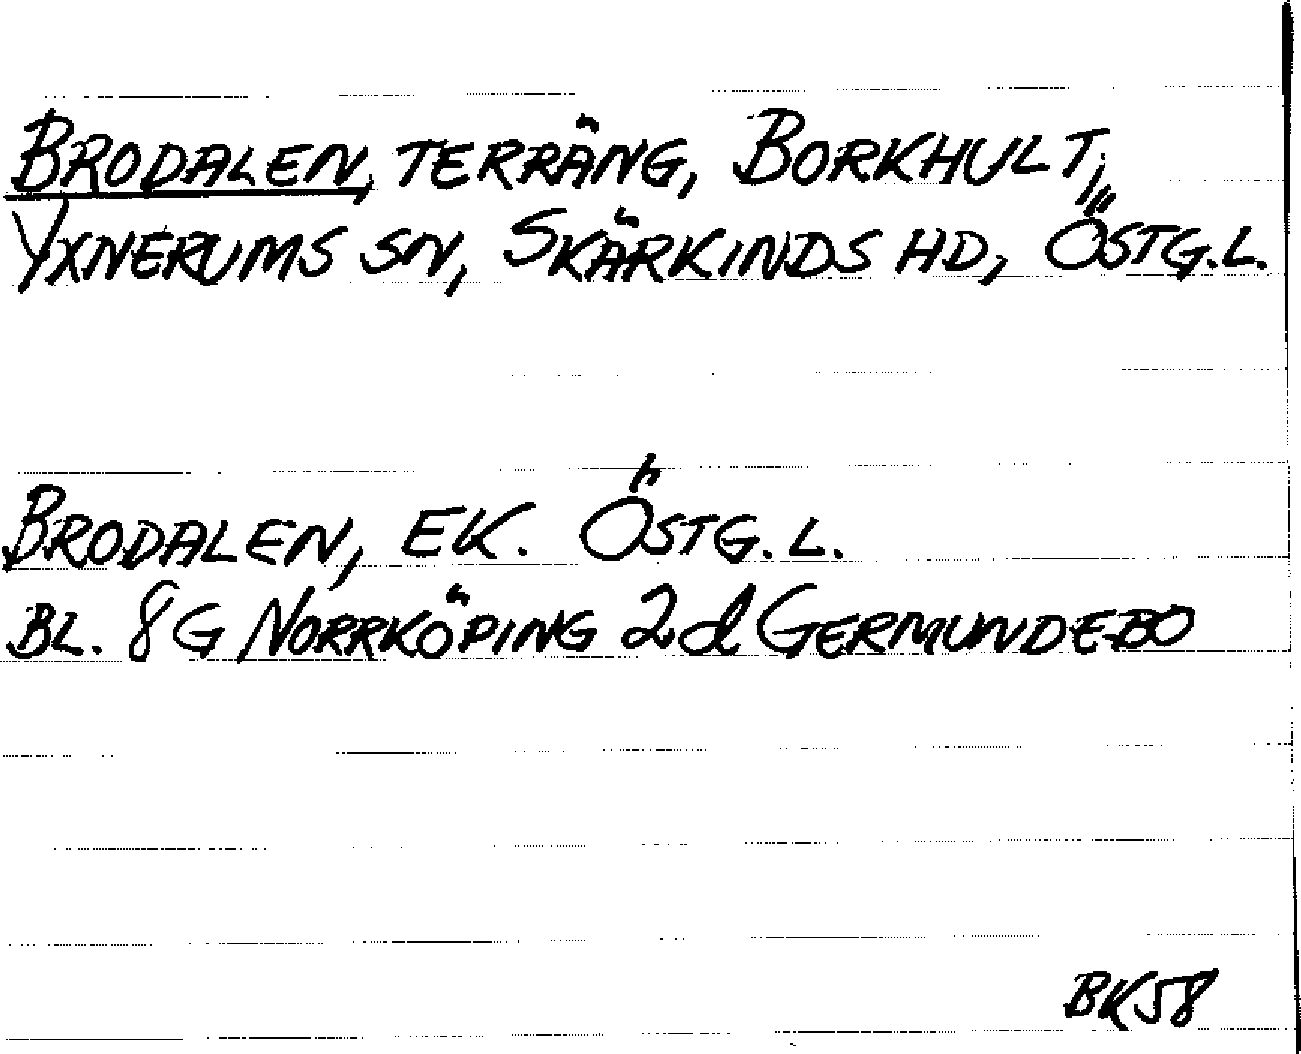 BRODALEN, TERRÄNG, BORKHULT,
YXNERUMS SN, SKÄRKINDS HD, ÖSTG.L.
BRODALEN, EK. ÖSTG. L.
BL. 8G NORRKÖPING 2d GERMUNDEBO
BK58